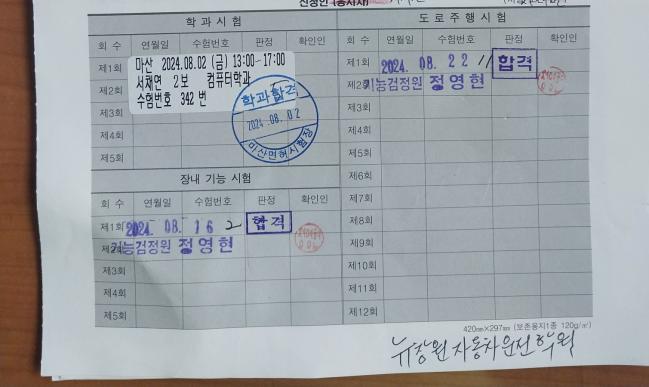 신청인
학 과 시 험
회 수 연월일 수험번호 판정 확인인
제1회
제2회
제3회
제4회
제5회
마산 2024.08.02 (금) 13:00~17:00
서채연 2보 컴퓨터학과
수험번호 342 번
학과합격
2024.08.02
마산면허시험장
장내 기능 시험
회 수 연월일 수험번호 판정 확인인
제1회 2024. 08. 16 2 합격
기능검정원 정영현
제3회
제4회
제5회
도 로 주 행 시 험
회 수 연월일 수험번호 판정 확인인
제1회 2024. 08. 22 11 합격
제2회 기능검정원 정영현
제3회
제4회
제5회
제6회
제7회
제8회
제9회
제10회
제11회
제12회
420㎜×297㎜ (보존용지1종 120g/㎡)
뉴창원자동차운전학원